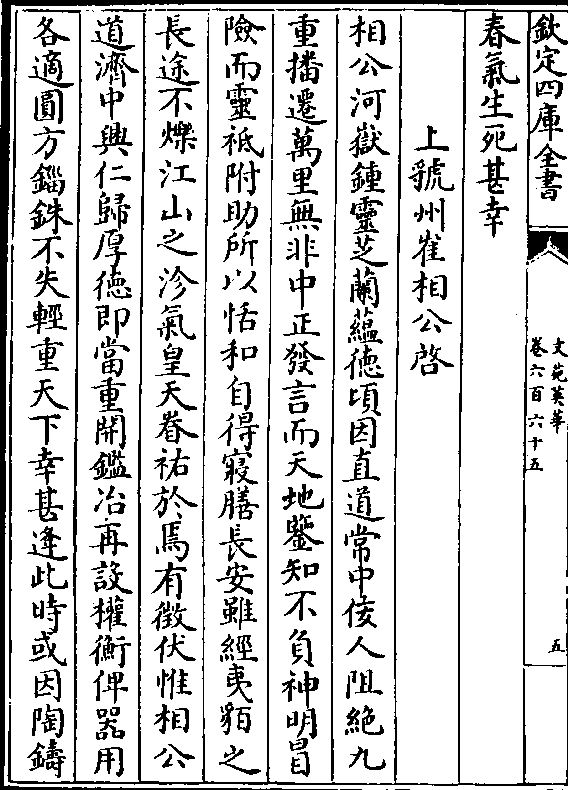 欽定四庫全書
文苑英華
卷六百六十五
五
春氣生死甚幸
上虢州崔相公啓
相公河嶽鍾靈芝蘭蘊德頃因直道常中佞人阻絶九
重播遷萬里無非中正發言而天地鑒知不負神明冒
險而靈祗附助所以恬和自得寢膳長安雖經夷貊之
長途不爍江山之沴氣皇天眷祐於焉有徵伏惟相公
道濟中興仁歸厚德即當重開鑑冶再設權衡俾器用
各適圓方錙銖不失輕重天下幸甚逢此時或因陶鑄